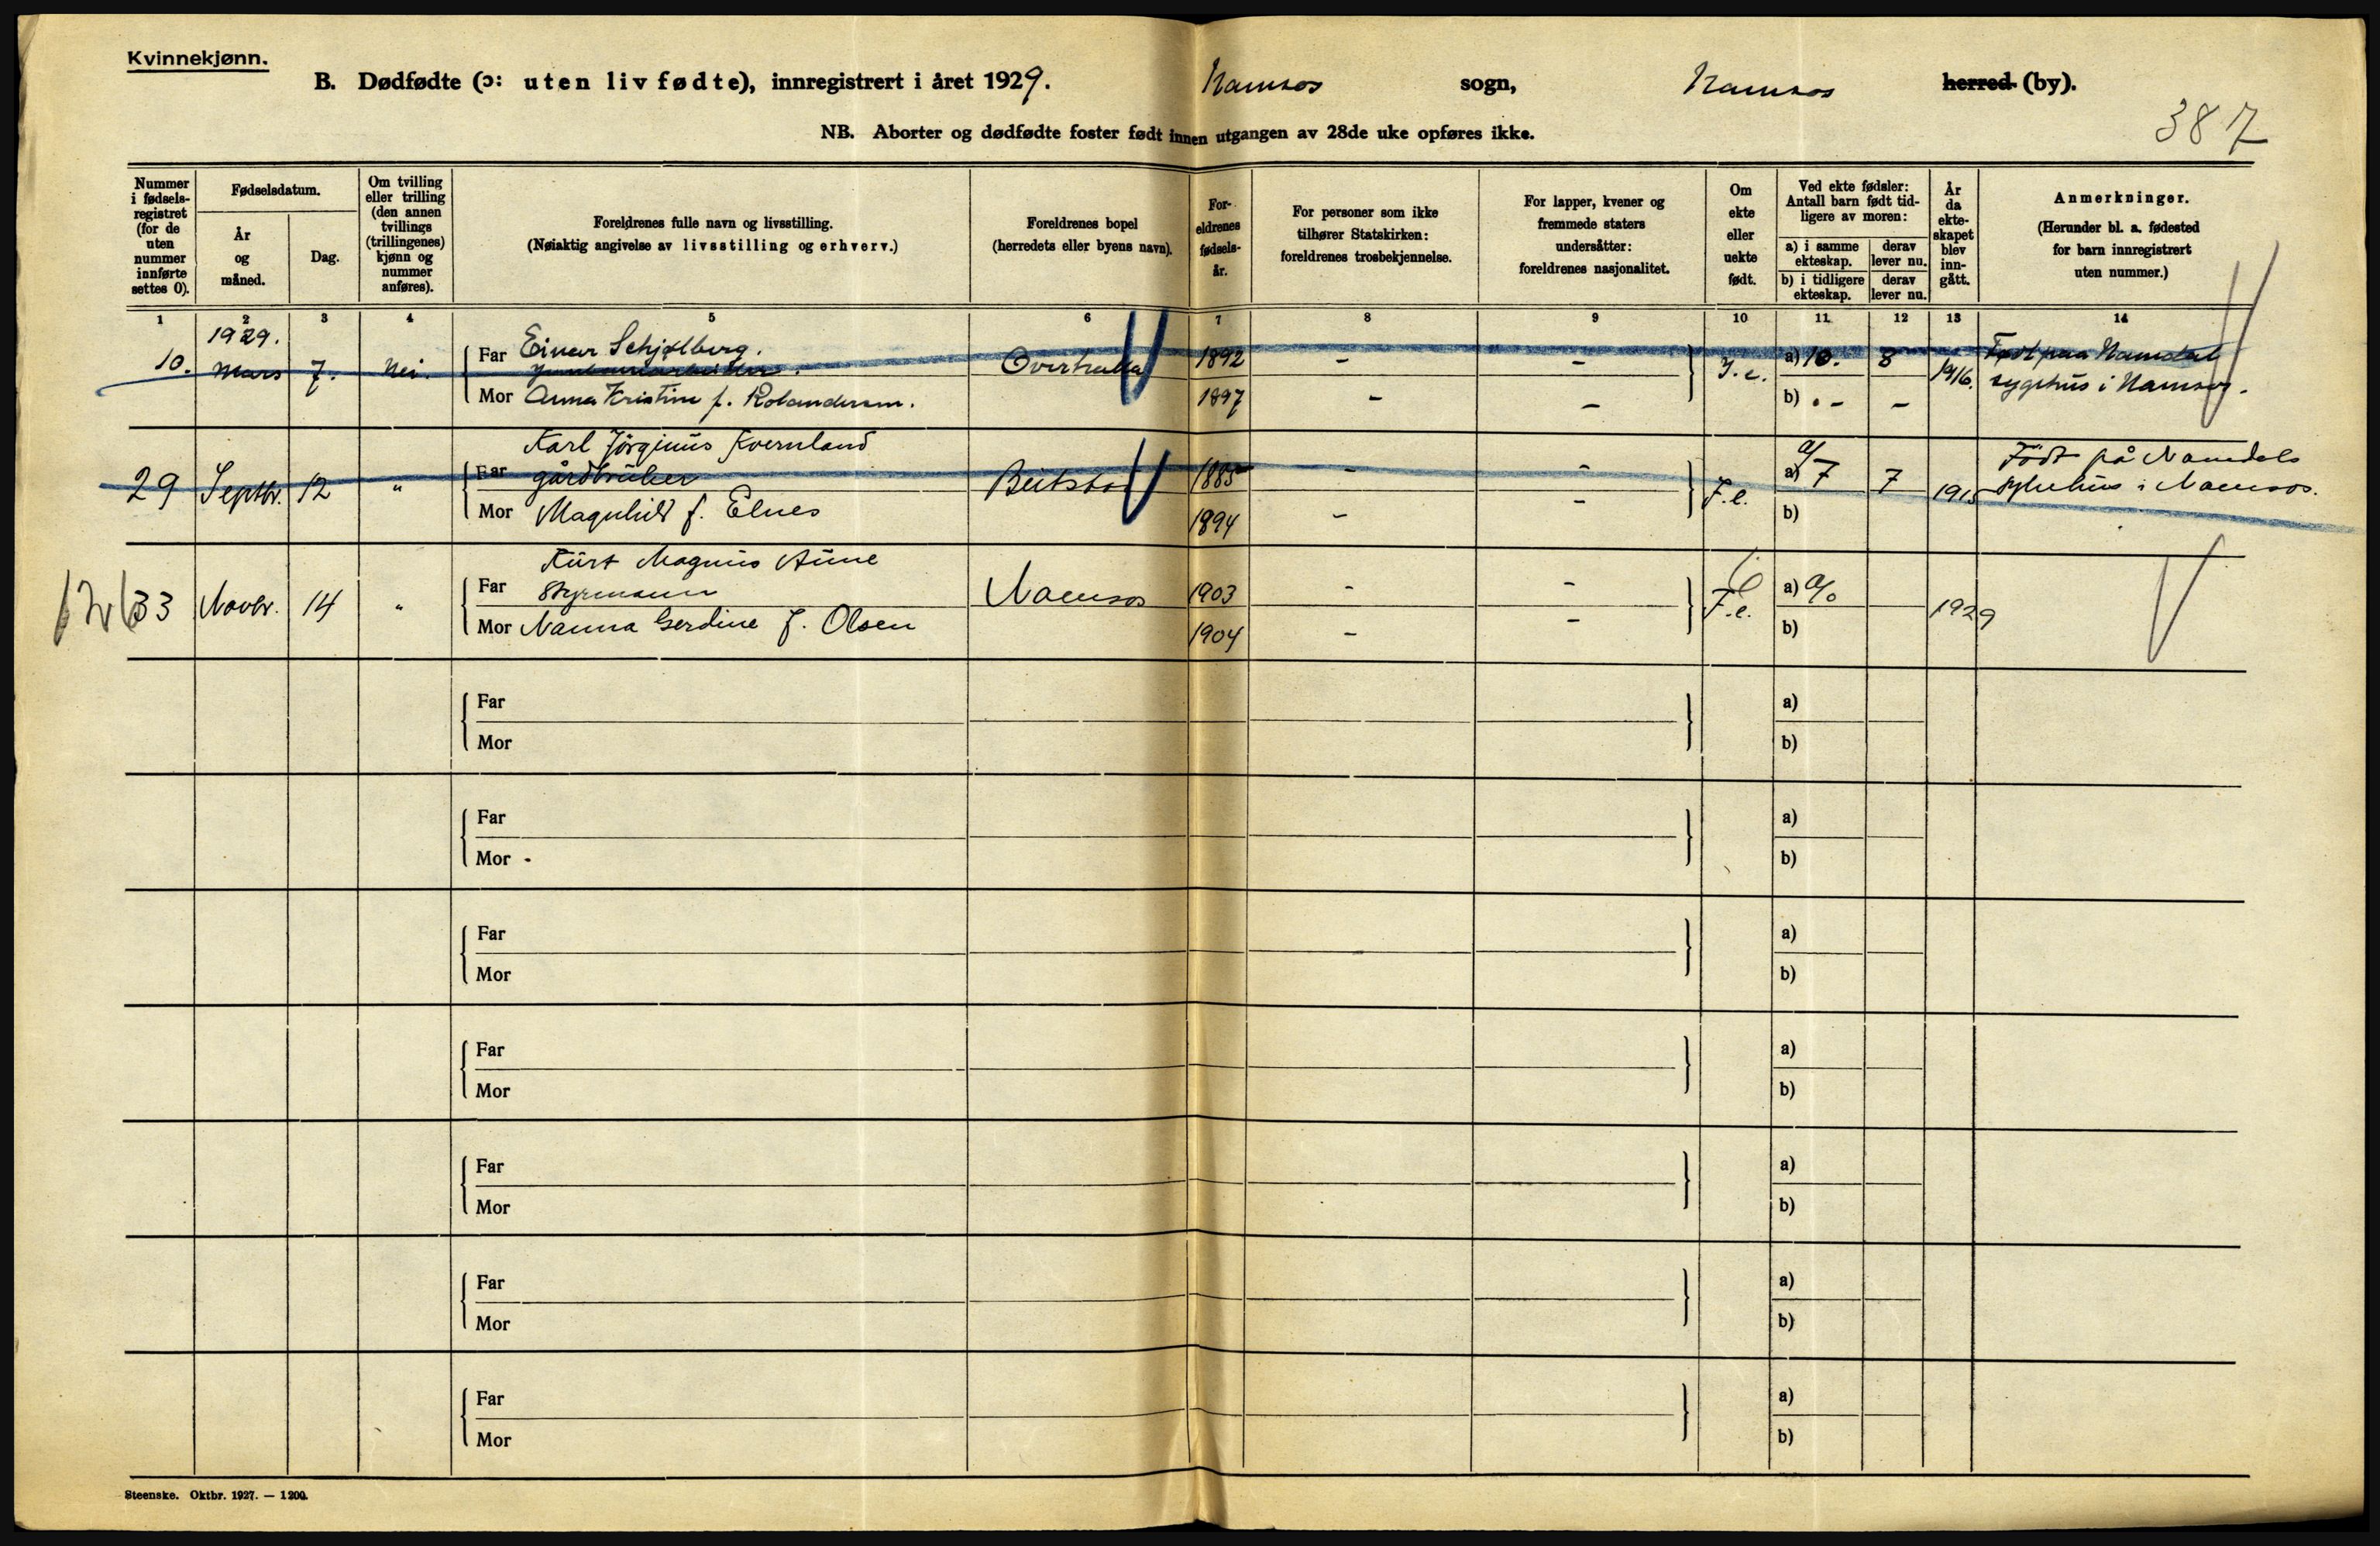 Kvinnekjønn.
B. Dødfødte (ɔ: uten liv fødte), innregistrert i året 1929. Namsos sogn, Namsos herred (by).
387
NB. Aborter og dødfødte foster født innen utgangen av 28de uke opføres ikke.
Nummer i fødsels-registret (for de uten nummer innførte settes 0).
Fødselsdatum.
År og måned.
Dag.
Om tvilling eller trilling (den annen tvillings (trillingenes) kjønn og nummer anføres).
Foreldrenes fulle navn og livsstilling.
(Nøiaktig angivelse av livsstilling og erhverv.)
Foreldrenes bopel
(herredets eller byens navn).
For-eldrenes fødsels-år.
For personer som ikke tilhører Statskirken: foreldrenes trosbekjennelse.
For lapper, kvener og fremmede staters undersåtter: foreldrenes nasjonalitet.
Om ekte eller uekte født.
Ved ekte fødsler: Antall barn født tid-ligere av moren:
a) i samme ekteskap.
derav lever nu.
b) i tidligere ekteskap.
derav lever nu.
År da ekte-skapet blev inn-gått.
Anmerkninger.
(Herunder bl. a. fødested for barn innregistrert uten nummer.)
1 2 3 4 5 6 7 8 9 10 11 12 13 14
1929.
10. Mars 7. Nei. Far Einar Schjølberg. Overhalla 1892 - - F.e. a) 10. 8 1916. Født paa Namdal
sygehus i Namsos.
Mor Anna Kristine f. Rolandsen. 1897 - - b) - -
Karl Jørginus Kvernland
29 Septbr. 12 " Far gårdbruker Beitstad 1885 - - F.e. a) 7 7 1915 Født på Namdals
sykehus i Namsos.
Mor Magnhild f. Elnes 1894 - - b)
Kurt Magnus Aune
33 Novbr. 14 " Far Styrmann Namsos 1903 - - F.e. a) 0/0 1929
Mor Nanna Gerdine f. Olsen 1904 - - b)
Far a)
Mor b)
Far a)
Mor b)
Far a)
Mor b)
Far a)
Mor b)
Far a)
Mor b)
Far a)
Mor b)
Far a)
Mor b)
Steenske. Oktbr. 1927. — 1200.